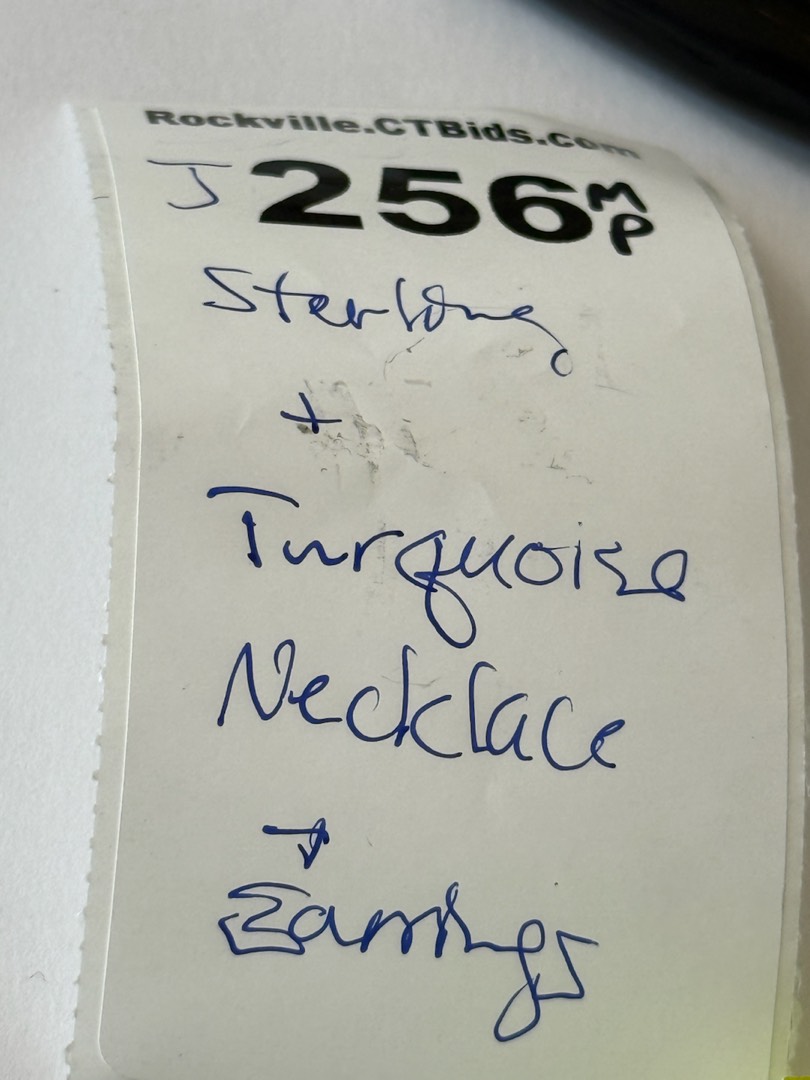 Rockville.CTBids.Com
J 256 MP
Sterling
+
Turquoise
Necklace
+
Earrings